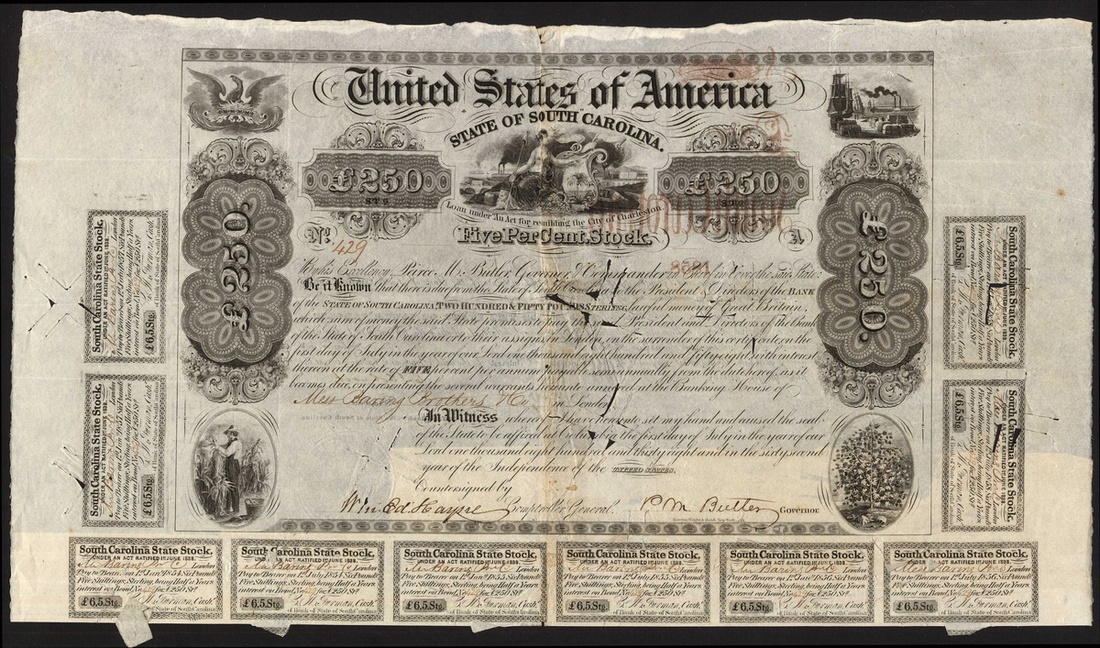 United States of America
STATE OF SOUTH CAROLINA.
£250
STG
£250
STG
Loan under An Act for rebuilding the City of Charleston
Five Per Cent. Stock.
No. 429
A
£250.
£250.
His Excellency, Pierce M. Butler, Governor & Commander in Chief in & over the said State:
Be it Known that there is due from the State of South Carolina to the President & Directors of the BANK
of the STATE OF SOUTH CAROLINA, TWO HUNDRED & FIFTY POUNDS STERLING, lawful money of Great Britain,
which sum of money the said State promises to pay to the said President and Directors of the Bank
of the State of South Carolina or to their assigns in London, on the surrender of this certificate, on the
first day of July in the year of our Lord one thousand eight hundred and fifty eight with
thereon at the rate of FIVE per cent per annum payable semi annually from the date hereof, as it
becomes due, on presenting the several warrants hereunto annexed at the Banking House of
Messrs Baring Brothers & Co. in London.
In Witness whereof I have hereunto set my hand and caused the seal
of the State to be affixed at Columbia the first day of July in the year of our
Lord one thousand eight hundred and thirty eight and in the sixty second
year of the Independence of the UNITED STATES.
Countersigned by
Wm Ed Hayne Comptroller General. P. M. Butler Governor
South Carolina State Stock,
UNDER AN ACT RATIFIED 1st JUNE 1838.
Pay to Bearer on 1st Jany 1857 Six Pounds
Five Shillings, Sterling, being Half a Years
interest on Bond, No. 429 for £250 Stg.
£6,5 Stg
of Bank of State of South Carolina
South Carolina State Stock,
UNDER AN ACT RATIFIED 1st JUNE 1838.
Pay to Bearer on 1st Jany 1858 Six Pounds
Five Shillings, Sterling, being Half a Years
interest on Bond, No. for £250 Stg.
£6,5 Stg
South Carolina State Stock,
£6,5 Stg
South Carolina State Stock,
£6,5 Stg
South Carolina State Stock,
UNDER AN ACT RATIFIED 1st JUNE 1838.
London
Pay to Bearer on 1st Jany 1854 Six Pounds
Five Shillings, Sterling, being Half a Years
interest on Bond, No. 429 for £250 Stg.
£6,5 Stg
of Bank of State of South Carolina
South Carolina State Stock,
UNDER AN ACT RATIFIED 1st JUNE 1838.
London
Pay to Bearer on 1st July 1854 Six Pounds
Five Shillings, Sterling, being Half a Years
interest on Bond, No. 429 for £250 Stg.
£6,5 Stg
of Bank of State of South Carolina
South Carolina State Stock,
UNDER AN ACT RATIFIED 1st JUNE 1838.
London
Pay to Bearer on 1st Jany 1855 Six Pounds
Five Shillings, Sterling, being Half a Years
interest on Bond, No. 429 for £250 Stg.
£6,5 Stg
of Bank of State of South Carolina
South Carolina State Stock,
UNDER AN ACT RATIFIED 1st JUNE 1838.
London
Pay to Bearer on 1st July 1855 Six Pounds
Five Shillings, Sterling, being Half a Years
interest on Bond, No. 429 for £250 Stg.
£6,5 Stg
of Bank of State of South Carolina
South Carolina State Stock,
UNDER AN ACT RATIFIED 1st JUNE 1838.
London
Pay to Bearer on 1st Jany 1856 Six Pounds
Five Shillings, Sterling, being Half a Years
interest on Bond, No. 429 for £250 Stg.
£6,5 Stg
of Bank of State of South Carolina
South Carolina State Stock,
UNDER AN ACT RATIFIED 1st JUNE 1838.
London
Pay to Bearer on 1st July 1856 Six Pounds
Five Shillings, Sterling, being Half a Years
interest on Bond, No. 429 for £250 Stg.
£6,5 Stg
of Bank of State of South Carolina